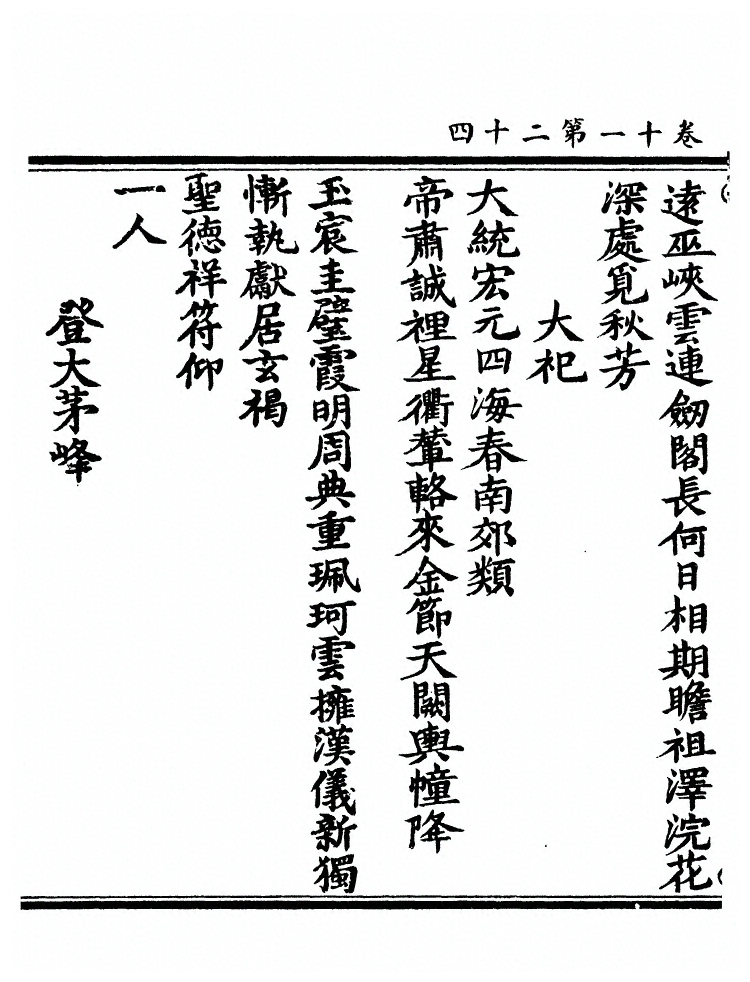 卷十一第二十四
遠巫峽雲連劒閣長何日相期瞻祖澤浣花
深處覓秋芳
大祀
大統宏元四海春南郊類
帝肅誠禋星衢輦輅來金節天闕輿幢降
玉宸圭璧霞明周典重珮珂雲擁漢儀新獨
慚執獻居玄褐
聖德祥符仰
一人
登大茅峰